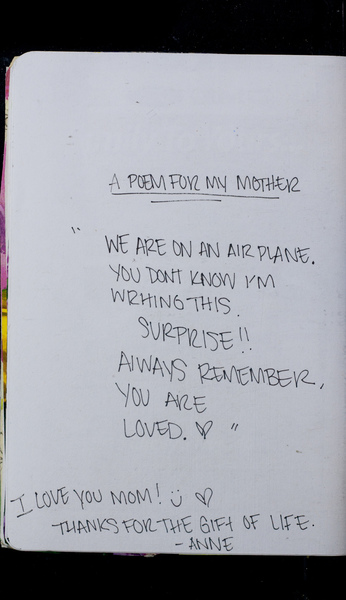 A POEM FOR MY MOTHER
"
WE ARE ON AN AIRPLANE.
YOU DONT KNOW I'M
WRITING THIS.
SURPRISE!!
ALWAYS REMEMBER,
YOU ARE
LOVED. ♡ "
I LOVE YOU MOM! :) ♡
THANKS FOR THE GIFT OF LIFE.
-ANNE